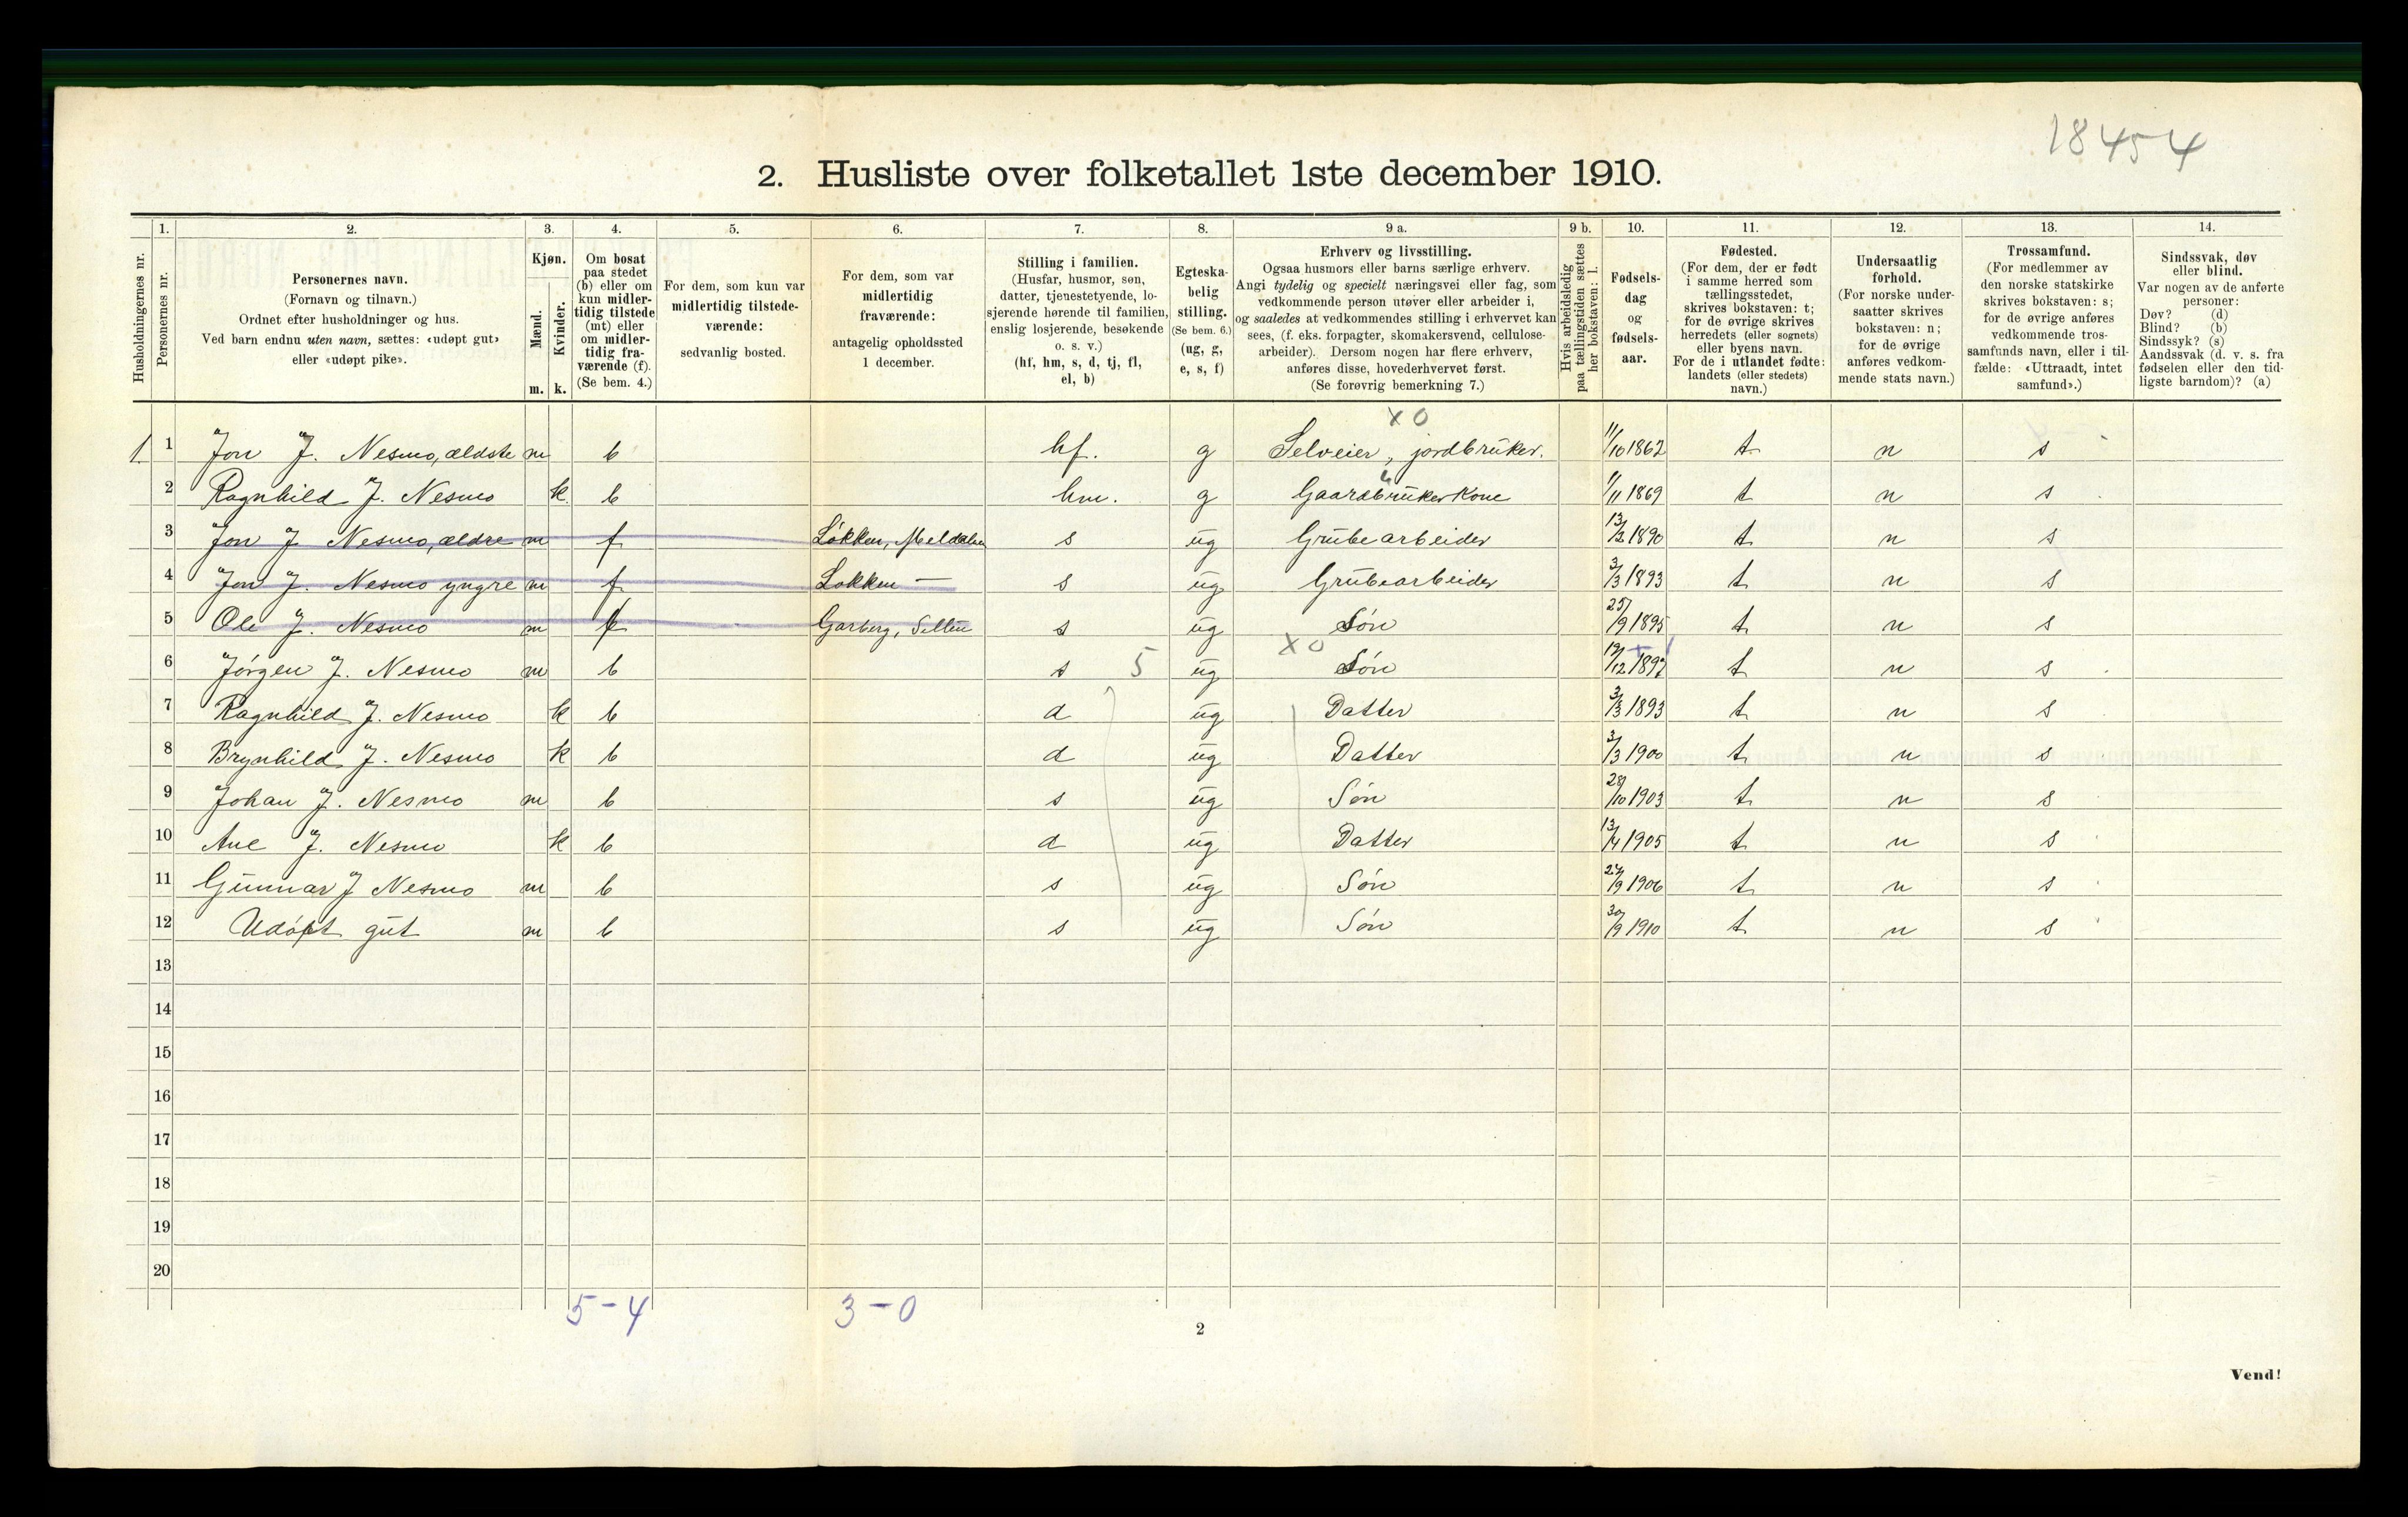 18454
2. Husliste over folketallet 1ste december 1910.
Husholdningernes nr.
1. Personernes nr.
2. Personernes navn. (Fornavn og tilnavn.) Ordnet efter husholdninger og hus. Ved barn endnu uten navn, sættes: «udøpt gut» eller «udøpt pike».
3. Kjøn. Mænd. m. Kvinder. k.
4. Om bosat paa stedet (b) eller om kun midlertidig tilstede (mt) eller om midlertidig fraværende (f). (Se bem. 4.)
5. For dem, som kun var midlertidig tilstedeværende: sedvanlig bosted.
6. For dem, som var midlertidig fraværende: antagelig opholdssted 1 december.
7. Stilling i familien. (Husfar, husmor, søn, datter, tjenestetyende, losjerende hørende til familien, enslig losjerende, besøkende o. s. v.) (hf, hm, s, d, tj, fl, el, b)
8. Egteskabelig stilling. (Se bem. 6.) (ug, g, e, s, f)
9 a. Erhverv og livsstilling. Ogsaa husmors eller barns særlige erhverv. Angi tydelig og specielt næringsvei eller fag, som vedkommende person utøver eller arbeider i, og saaledes at vedkommendes stilling i erhvervet kan sees, (f. eks. forpagter, skomakersvend, cellulosearbeider). Dersom nogen har flere erhverv, anføres disse, hovederhvervet først. (Se forøvrig bemerkning 7.)
9 b. Hvis arbeidsledig paa tællingstiden sættes her bokstaven: l.
10. Fødselsdag og fødselsaar.
11. Fødested. (For dem, der er født i samme herred som tællingsstedet, skrives bokstaven: t; for de øvrige skrives herredets (eller sognets) eller byens navn. For de i utlandet fødte: landets (eller stedets) navn.)
12. Undersaatlig forhold. (For norske undersaatter skrives bokstaven: n; for de øvrige anføres vedkommende stats navn.)
13. Trossamfund. (For medlemmer av den norske statskirke skrives bokstaven: s; for de øvrige anføres vedkommende trossamfunds navn, eller i tilfælde: «Uttraadt, intet samfund».)
14. Sindssvak, døv eller blind. Var nogen av de anførte personer: Døv? (d) Blind? (b) Sindssyk? (s) Aandssvak (d. v. s. fra fødselen eller den tidligste barndom)? (a)
x 0
1. 1 Jon J. Nesmo, ældste m b hf. g Selveier, jordbruker. 11/10 1862 t n s
2 Ragnhild J. Nesmo k. b hm. g Gaardbruker Kone 1/11 1869 t n s
3 Jon J Nesmo, ældre m f Løkken, Meldalen s ug Grubearbeider 13/2 1890 t n s
4 Jon J. Nesmo yngre m f Løkken — s ug Grubearbeider 3/3 1893 t n s
5 Ole J. Nesmo m f Garberg, Selbu s ug Søn 25/9 1895 t n s
x 0
6 Jørgen J. Nesmo m b s 5 ug Søn 19/12 1897 t n s
7 Ragnhild J. Nesmo k b d ug Datter 3/3 1893 t n s
8 Brynhild J. Nesmo k b d ug Datter 3/3 1900 t n s
9 Johan J. Nesmo m b s ug Søn 28/10 1903 t n s
10 Ane J. Nesmo k b d ug Datter 13/4 1905 t n s
11 Gunnar J Nesmo m b s ug Søn 24/9 1906 t n s
12 Udøpt gut m b s ug Søn 30/9 1910 t n s
13
14
15
16
17
18
19
20
5-4 3-0
2
Vend!